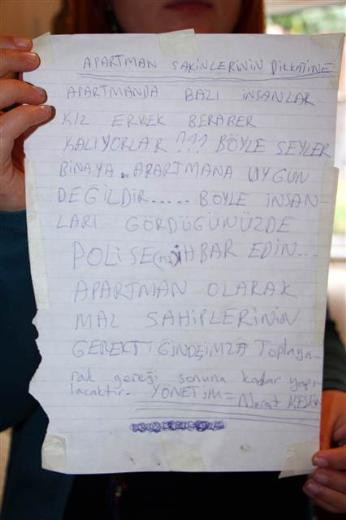 APARTMAN SAKİNLERİNİN DİKKATİNE
APARTMANDA BAZI İNSANLAR
KIZ ERKEK BERABER
KALIYORLAR ??? BÖYLE ŞEYLER
BİNAYA APARTMANA UYGUN
DEĞİLDİR..... BÖYLE İNSAN-
LARI GÖRDÜĞÜNÜZDE
POLİSE İHBAR EDİN...
APARTMAN OLARAK
MAL SAHİPLERİNİN
GEREKTİĞİNDE İMZA Toplaya-
rak gereği sonuna kadar yapı-
lacaktır. YÖNETİM = Murat